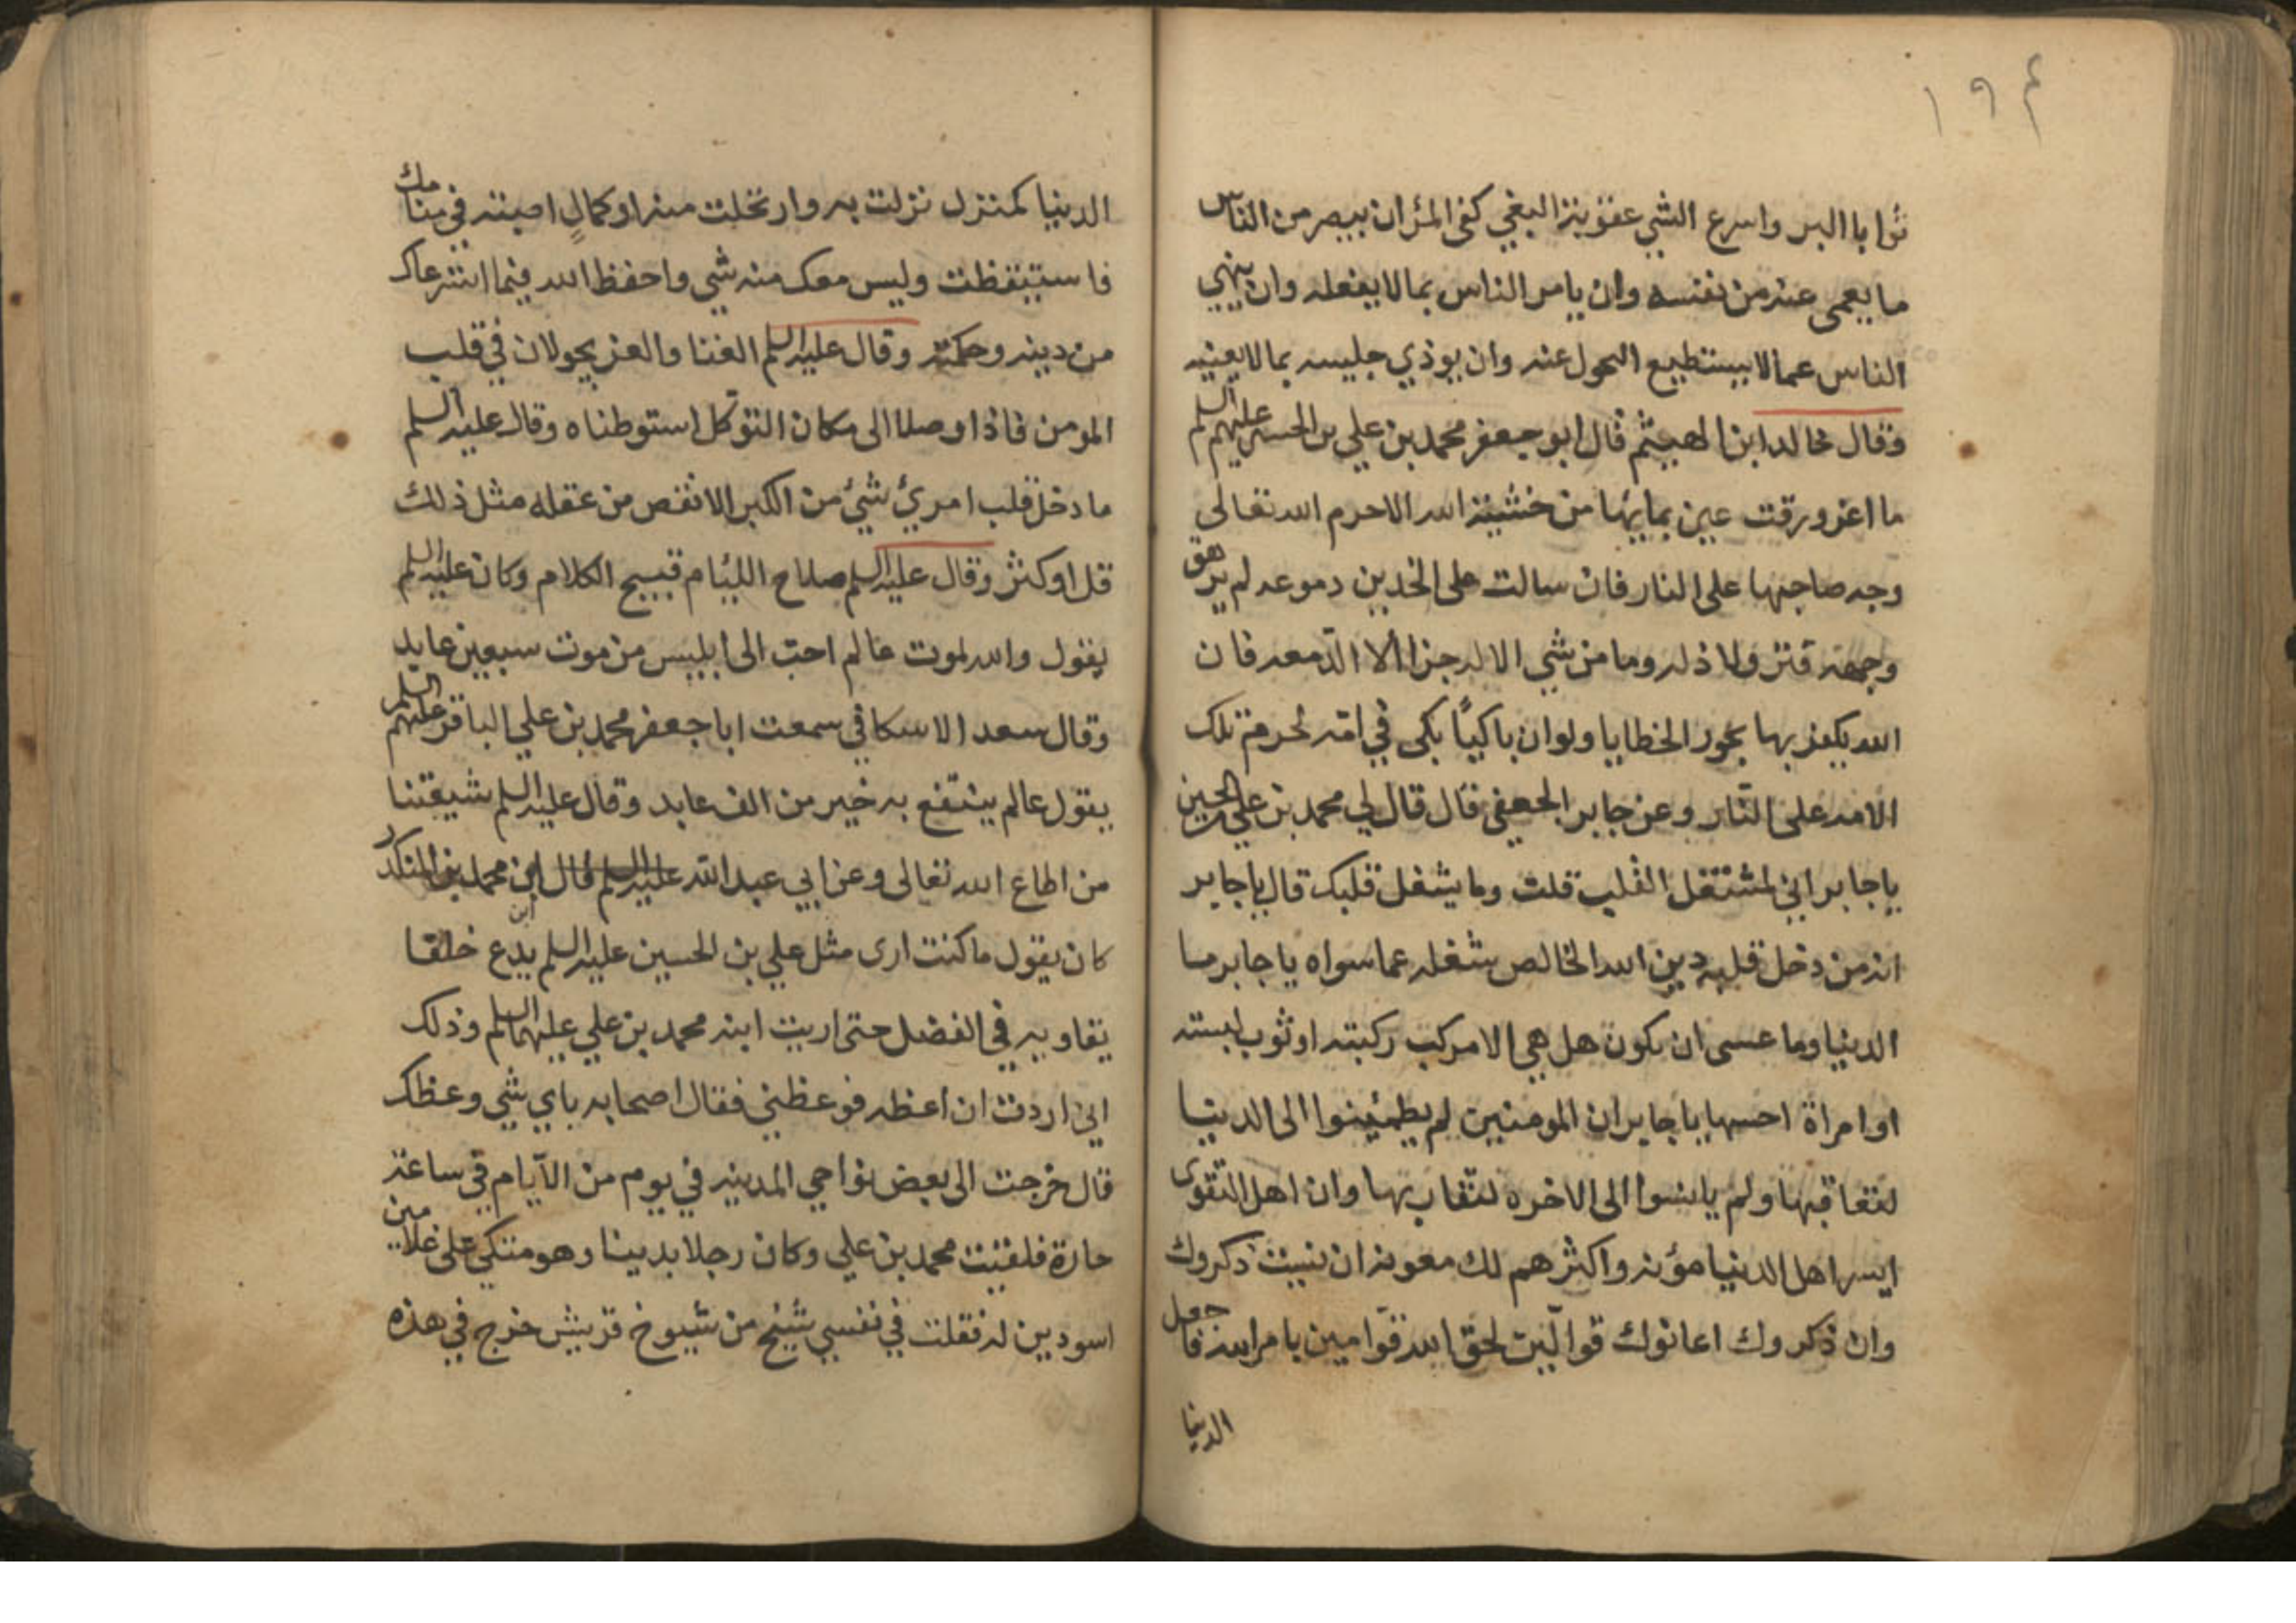 ١٩٤
ثوابا البر واسرع الشي عقوبة البغي كفى المرء ان يبصر من الناس
ما يعمى عنه من نفسه وان يامر الناس بما لا يفعله وان ينهى
الناس عما لا يستطيع التحول عنه وان يوذي جليسه بما لا يعنيه
وقال خالد ابن الهيثم قال ابو جعفر محمد بن علي بن الحسين عليهم السلم
ما اغرورقت عين بمايها من خشية الله الا حرم الله تعالى
وجه صاحبها على النار فان سالت على الخدين دموعه لم يرهق
وجهه قتر ولا ذله وما من شي الا له جزاء الا الدمعه فان
الله يكفر بها بحور الخطايا ولو ان باكيًا بكى في امّه لحرم تلك
الامه على النّار وعن جابر الجعفي قال قال لي محمد بن علي بن الحسين
يا جابر اني لمشتغل القلب قلت وما يشغل قلبك قال يا جابر
انه من دخل قلبه دين الله الخالص شغله عما سواه يا جابر ما
الدنيا وما عسى ان يكون هل هي الا مركب ركبته او ثوب لبسته
او امراة احسبها يا جابر ان المومنين لم يطمئينوا الى الدنيا
لتعاقبها ولم يا الى الاخره بها وان اهل التقوى
ايسر اهل الدنيا مؤنه واكثرهم لك معونه ان نسيت ذكروك
وان ذكروك اعانوك قوالين لحق الله قوامين بامر الله فاجعل
الدنيا
الدنيا كمنزل نزلت به وارتحلت منه او كمالٍ اصبته في منامك
فاستيقظت وليس معك منه شي واحفظ الله فيما استرعاك
من دينه وحكمته وقال عليه السلم الغنا والعز يجولان في قلب
المومن فاذا وصلا الى مكان التوكل استوطناه وقال عليه السلم
ما دخل قلب امرئ شئ من الكبر الا نقص من عقله مثل ذلك
قل او كثر وقال عليه السلم صلاح اللئام قبيح الكلام وكان عليه السلم
يقول والله لموت عالم احب الى ابليس من موت سبعين عابد
وقال سعد الاسكافي سمعت ابا جعفر محمد بن علي الباقر عليهم السلم
يقول عالم ينتفع به خير من الف عابد وقال عليه السلم شيعتنا
من اطاع الله تعالى وعن ابي عبد الله عليه السلم قال ان محمد بن المنكدر
كان يقول ما كنت ارى مثل علي بن الحسين عليه السلم يدع خلقا
يقاويه في الفضل حتى اريت ابنه محمد بن علي عليهما السلم وذلك
اني اردت ان اعظه فوعظني فقال اصحابه باي شي وعظك
قال خرجت الى بعض نواحي المدينه في يوم من الآيام في ساعة
حارة فلقيت محمد بن علي وكان رجلا بدينا وهو متكي على غلامين
اسودين له فقلت في نفسي شيخ من شيوخ قريش خرج في هذه